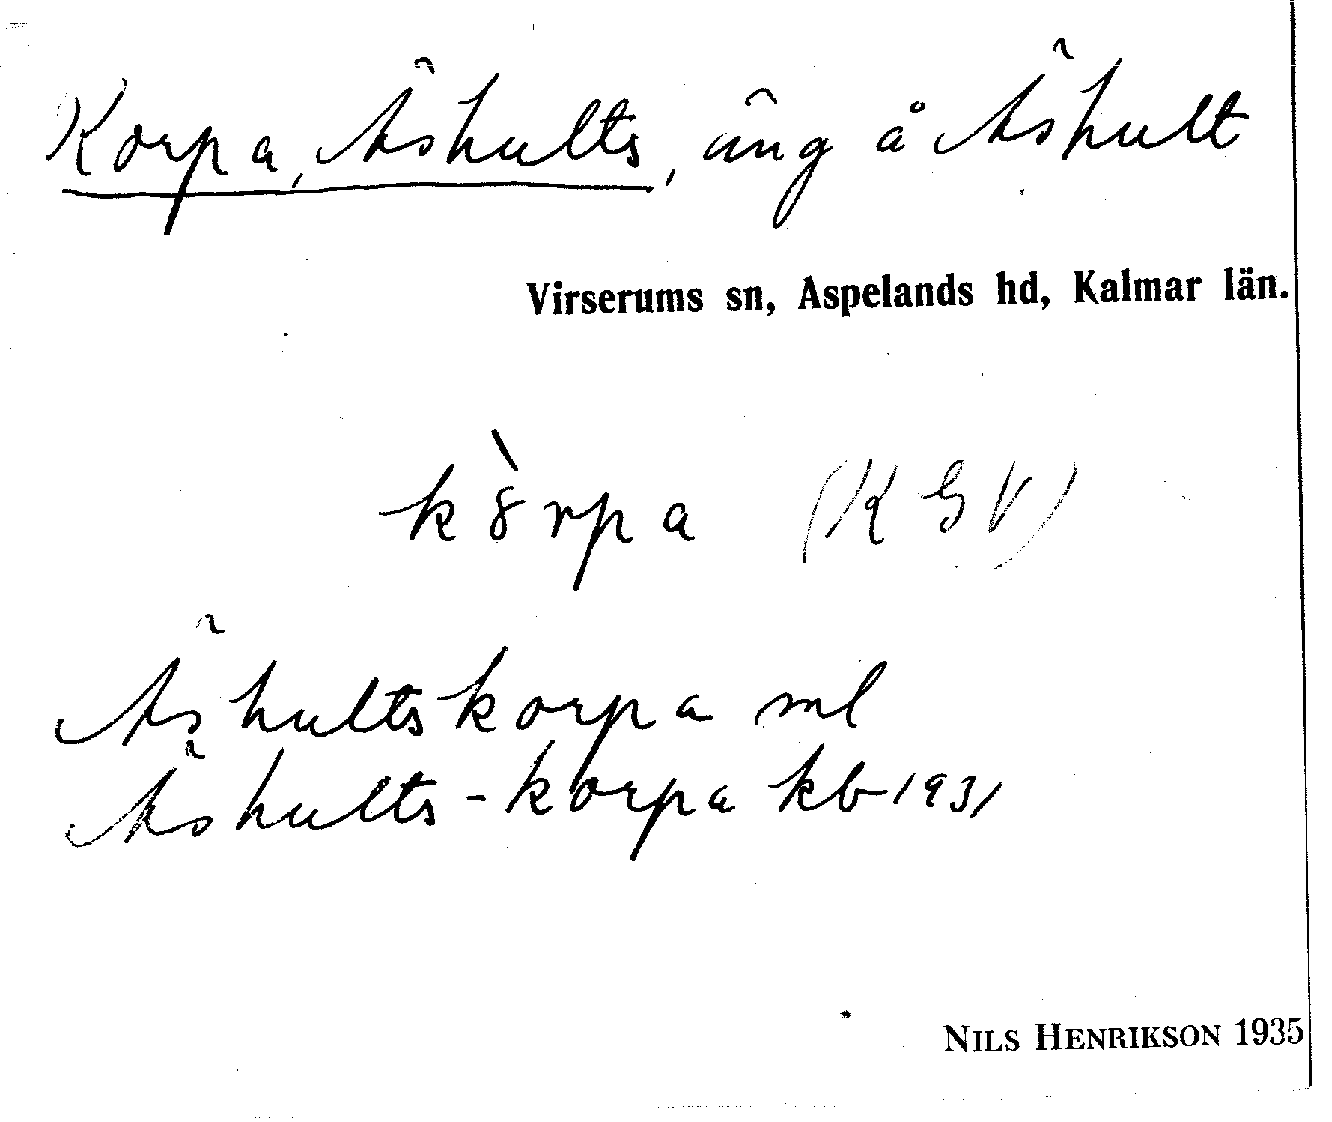 Korpa, Äshults, äng å Äshult
Virserums sn, Aspelands hd, Kalmar län.
kȣ̀rpa (KGV)
Äshultskorpa ml
Äshults-korpa kb 1931
NILS HENRIKSON 1935